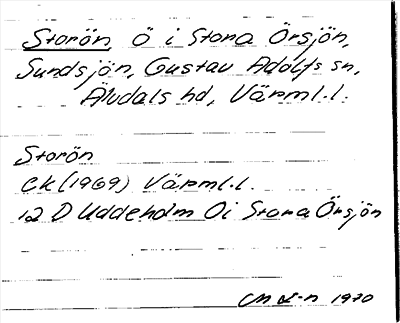 Storön Ö i Stora Örsjön,
Sundsjön, Gustav Adolfs sn,
Älvdals hd, Värml.l.
Storön
Ek (1969) Värml.l.
12 D Uddeholm Oi Stora Örsjön
1970